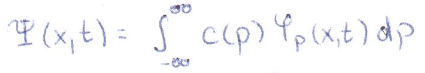 Ψ(x,t) = ∫_{-∞}^{∞} c(p) φ_p(x,t) dp